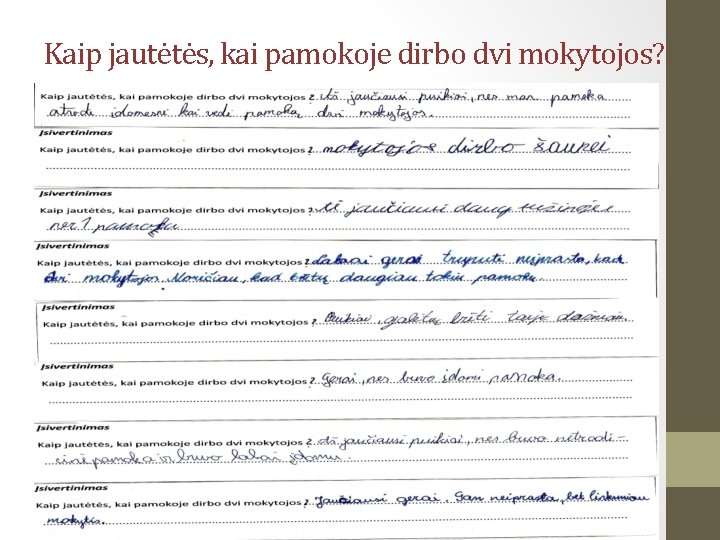 Kaip jautėtės, kai pamokoje dirbo dvi mokytojos?
Kaip jautėtės, kai pamokoje dirbo dvi mokytojos? Aš jaučiausi puikiai, nes man pamoka
atrodė įdomesnė kai vedė pamoką dvi mokytojos.
Įsivertinimas
Kaip jautėtės, kai pamokoje dirbo dvi mokytojos? mokytojos dirbo šaunei
Įsivertinimas
Kaip jautėtės, kai pamokoje dirbo dvi mokytojos? jaučiausi daug
nes 1 pamoka
Įsivertinimas
Kaip jautėtės, kai pamokoje dirbo dvi mokytojos? Labai gerai truputi neįprasta, kad
dvi mokytojos. Norėčiau, kad būtų daugiau tokiu pamokų.
Įsivertinimas
Kaip jautėtės, kai pamokoje dirbo dvi mokytojos? Puikiai galėtų būti taip dažniau.
Įsivertinimas
Kaip jautėtės, kai pamokoje dirbo dvi mokytojos? Gerai, nes buvo įdomi pamoka.
Įsivertinimas
Kaip jautėtės, kai pamokoje dirbo dvi mokytojos? Aš jaučiausi puikiai, nes buvo netradi-
cinė pamoka ir buvo labai įdomu.
Įsivertinimas
Kaip jautėtės, kai pamokoje dirbo dvi mokytojos? Jaučiausi gerai. Gan neiprasta, bet linksmiau
mokytis.